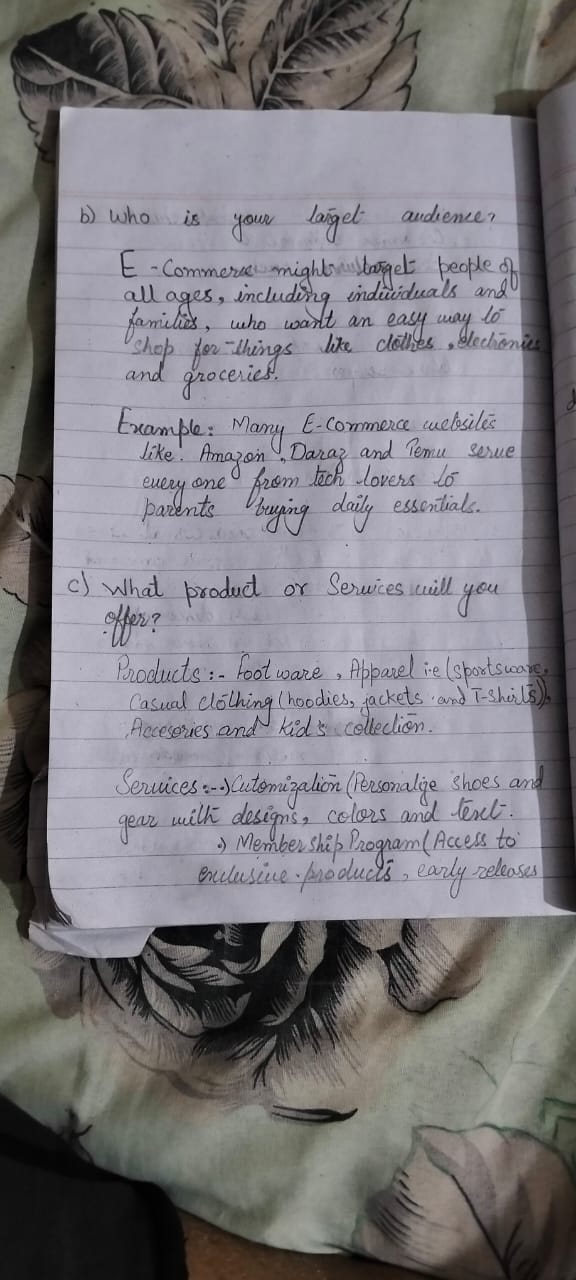 b) Who is your target audience?
E-Commerce might target people of
all ages, including individuals and
families, who want an easy way to
shop for things like clothes, electronics
and groceries.
Example: Many E-Commerce websites
like. Amazon, Daraz and Temu serve
everyone from tech lovers to
parents buying daily essentials.
c) What product or Services will you
offer?
Products :- Foot ware, Apparel i.e (sportsware,
Casual clothing (hoodies, jackets and T-Shirts)),
Accesories and Kid's collection.
Services :-→) Cutomization (Personalize shoes and
gear with designs, colors and text.
→) Membership Program (Access to
exclusive products, early releases